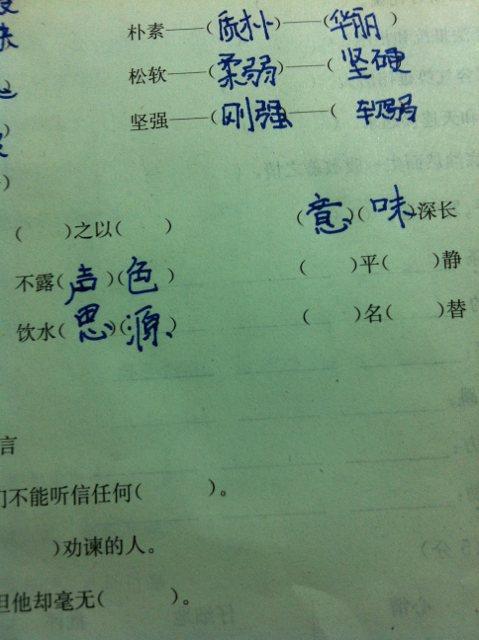 朴素——(质朴)——(华丽)
松软——(柔弱)——(坚硬
坚强——(刚强——(软弱
)
( )之以( ) (意)(味)深长
不露(声)(色) ( )平( )静
饮水(思)(源) ( )名( )替
言
们不能听信任何( )。
)劝谏的人。
但他却毫无( )。